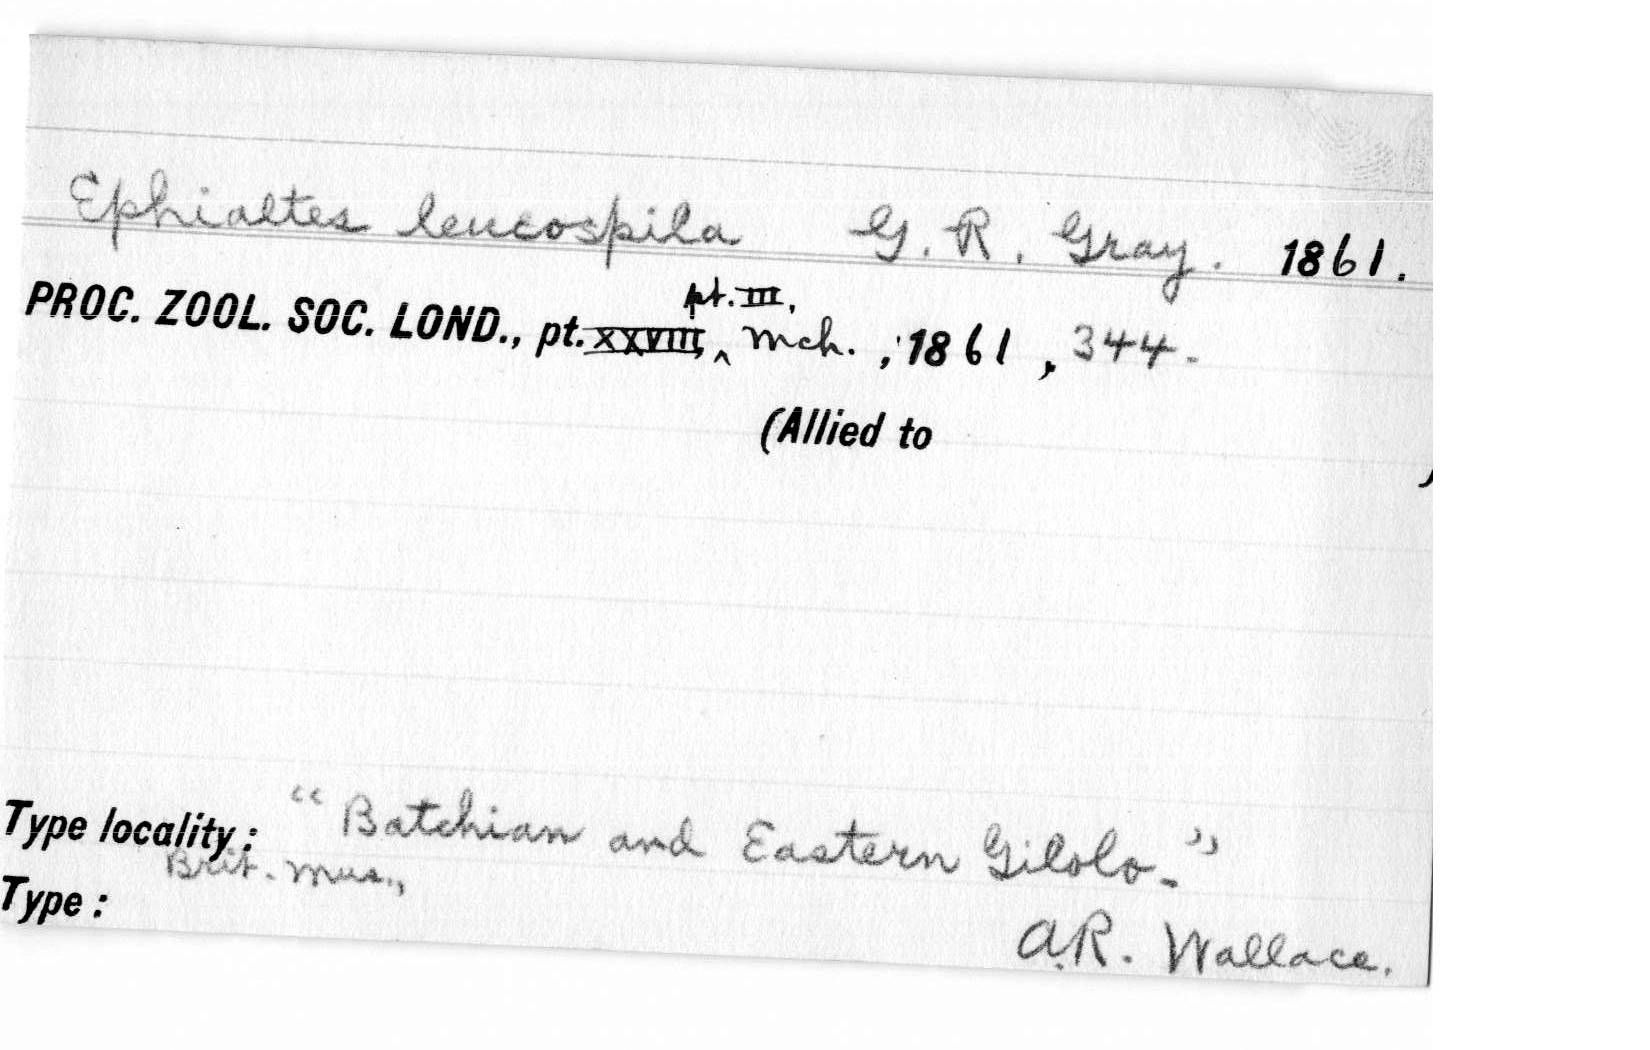 Ephialtes leucospila G. R. Gray. 1861.
pt. III,
PROC. ZOOL. SOC. LOND., pt. XXVIII, ^ Mch. , 1861 , 344.
(Allied to )
Type locality: “Batchian and Eastern Gilolo.”
Brit. Mus.,
Type:
A.R. Wallace.